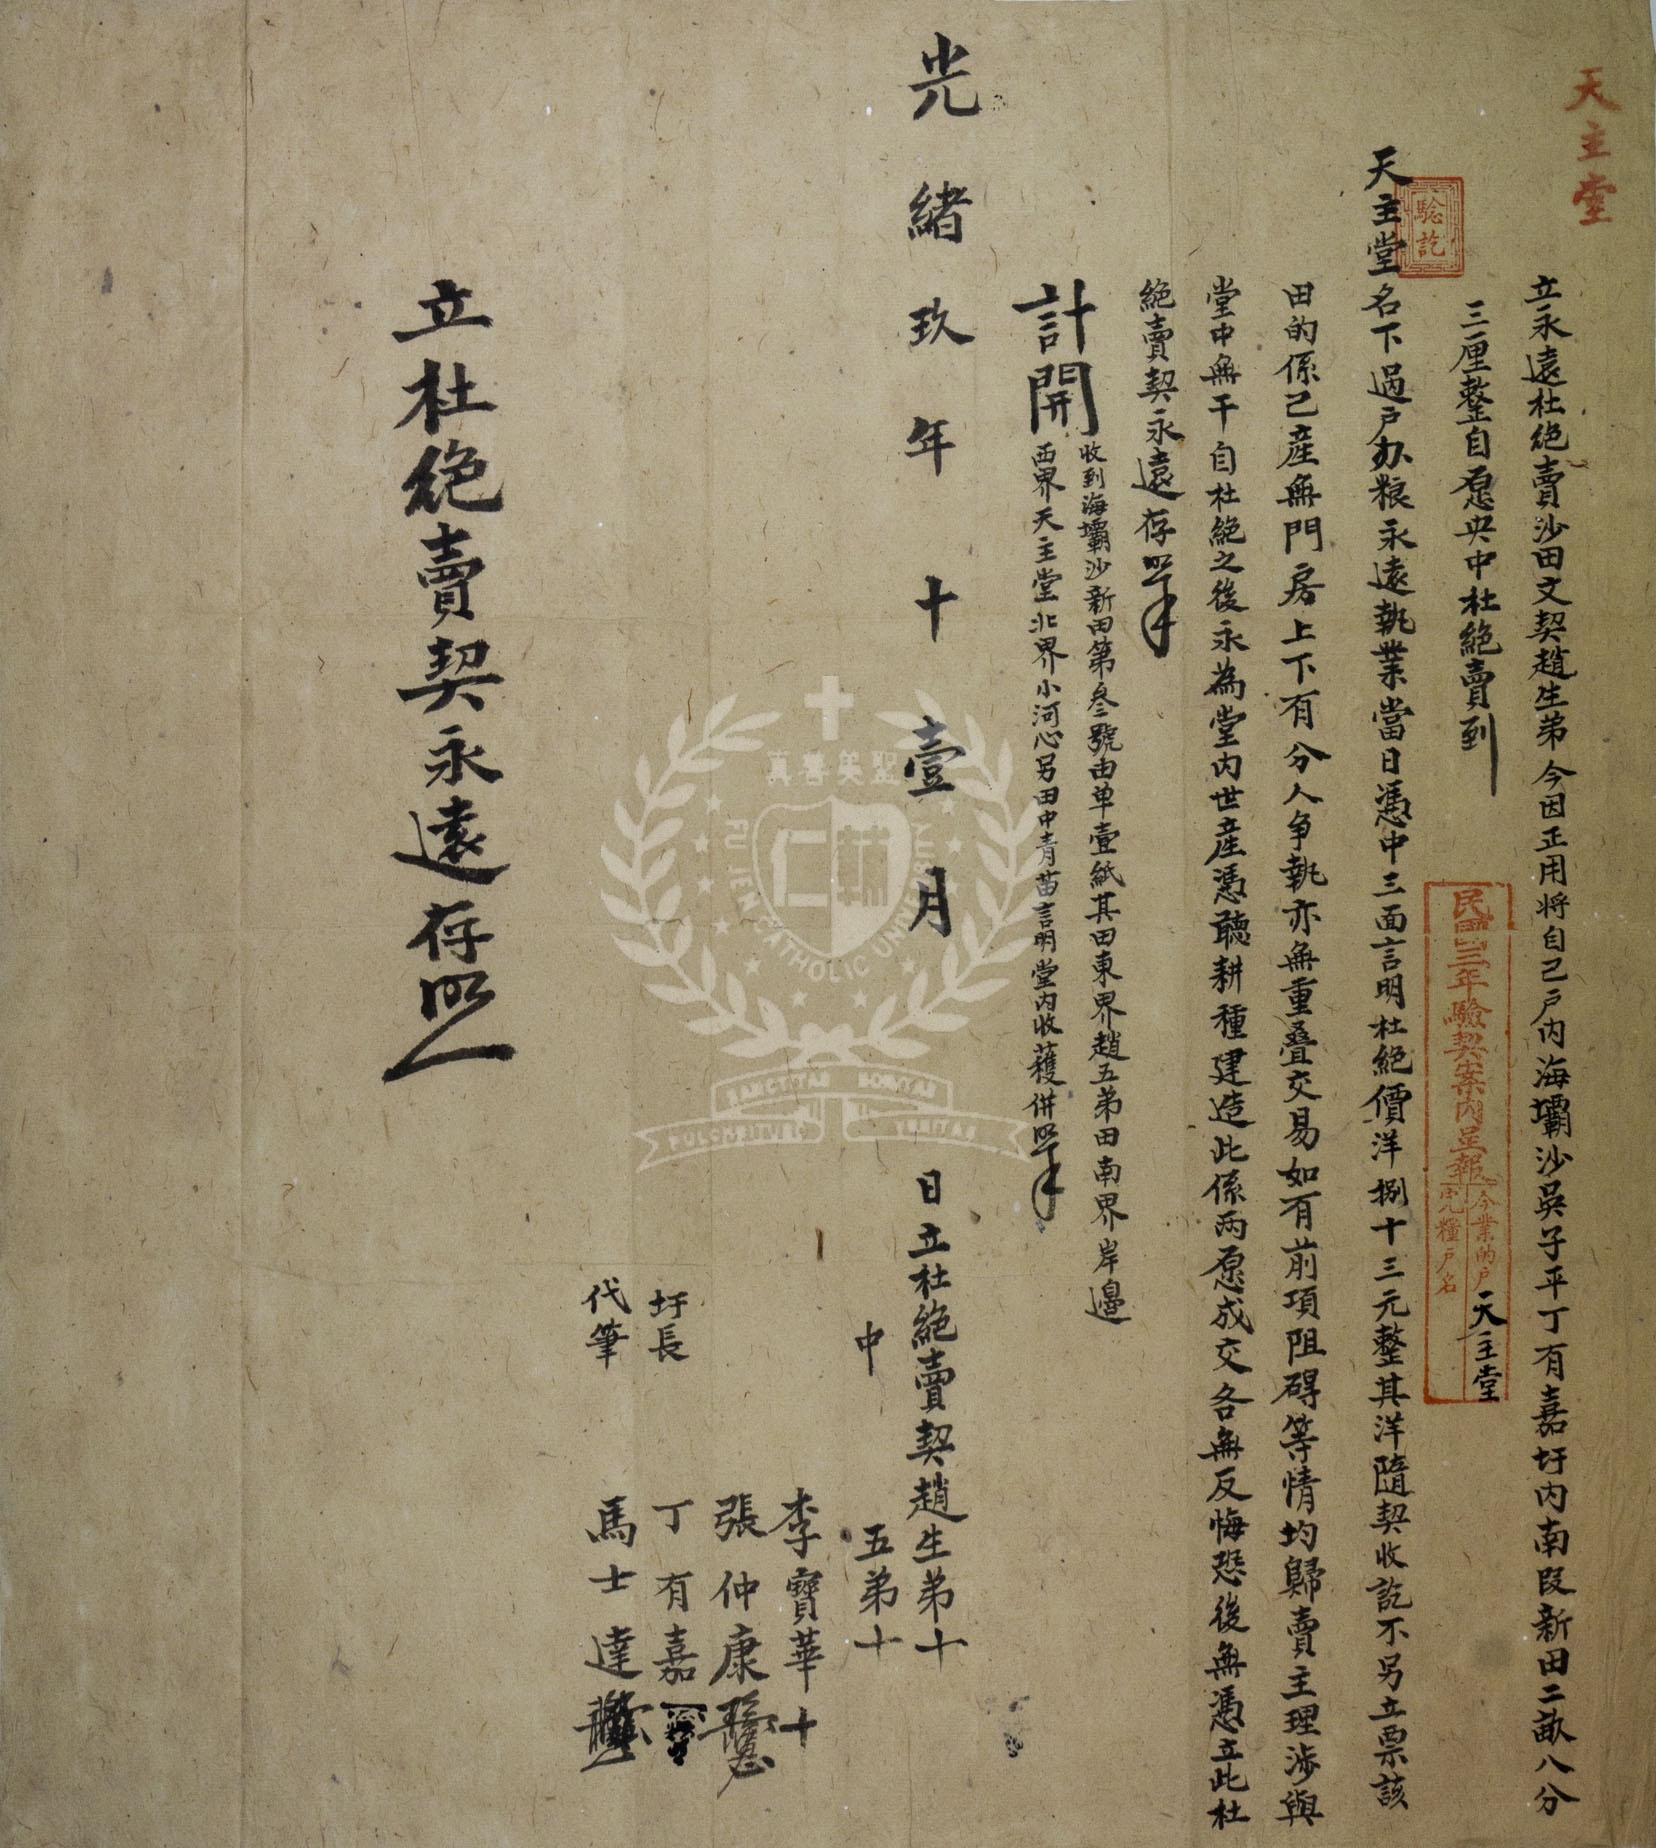 天主堂
立永遠杜絕賣沙田文契趙生弟今因正用將自己戶內海壩沙吳子平丁有嘉圩內南段新田二畝八分
三厘整自愿央中杜絕賣到
天主堂名下過戶办粮永遠執業當日憑中三面言明杜絕價洋捌十三元整其洋隨契收訖不另立票該
田的係己產無門房上下有分人争執亦無重叠交易如有前項阻碍等情均歸賣主理涉與
堂中無干自杜絕之後永為堂內世產憑聽耕種建造此係兩愿成交各無反悔恐後無憑立此杜
絕賣契永遠存照
計開
收到海壩沙新田第叁號由单壹紙其田東界趙五弟田南界岸邊
西界天主堂北界小河心另田中青苗言明堂內收獲併照
光緒玖年十壹月 日立杜絕賣契趙生弟十
五弟十
中
李寶華十
張仲康
圩長 丁有嘉
代筆 馬士達
立杜絕賣契永遠存照
驗訖
民國三年驗契案內呈報
今業的戶 天主堂
完糧戶名
真善美聖
輔仁
FU JEN CATHOLIC UNIVERSITY
SANCTITAS BONITAS
PULCHRITUDO VERITAS